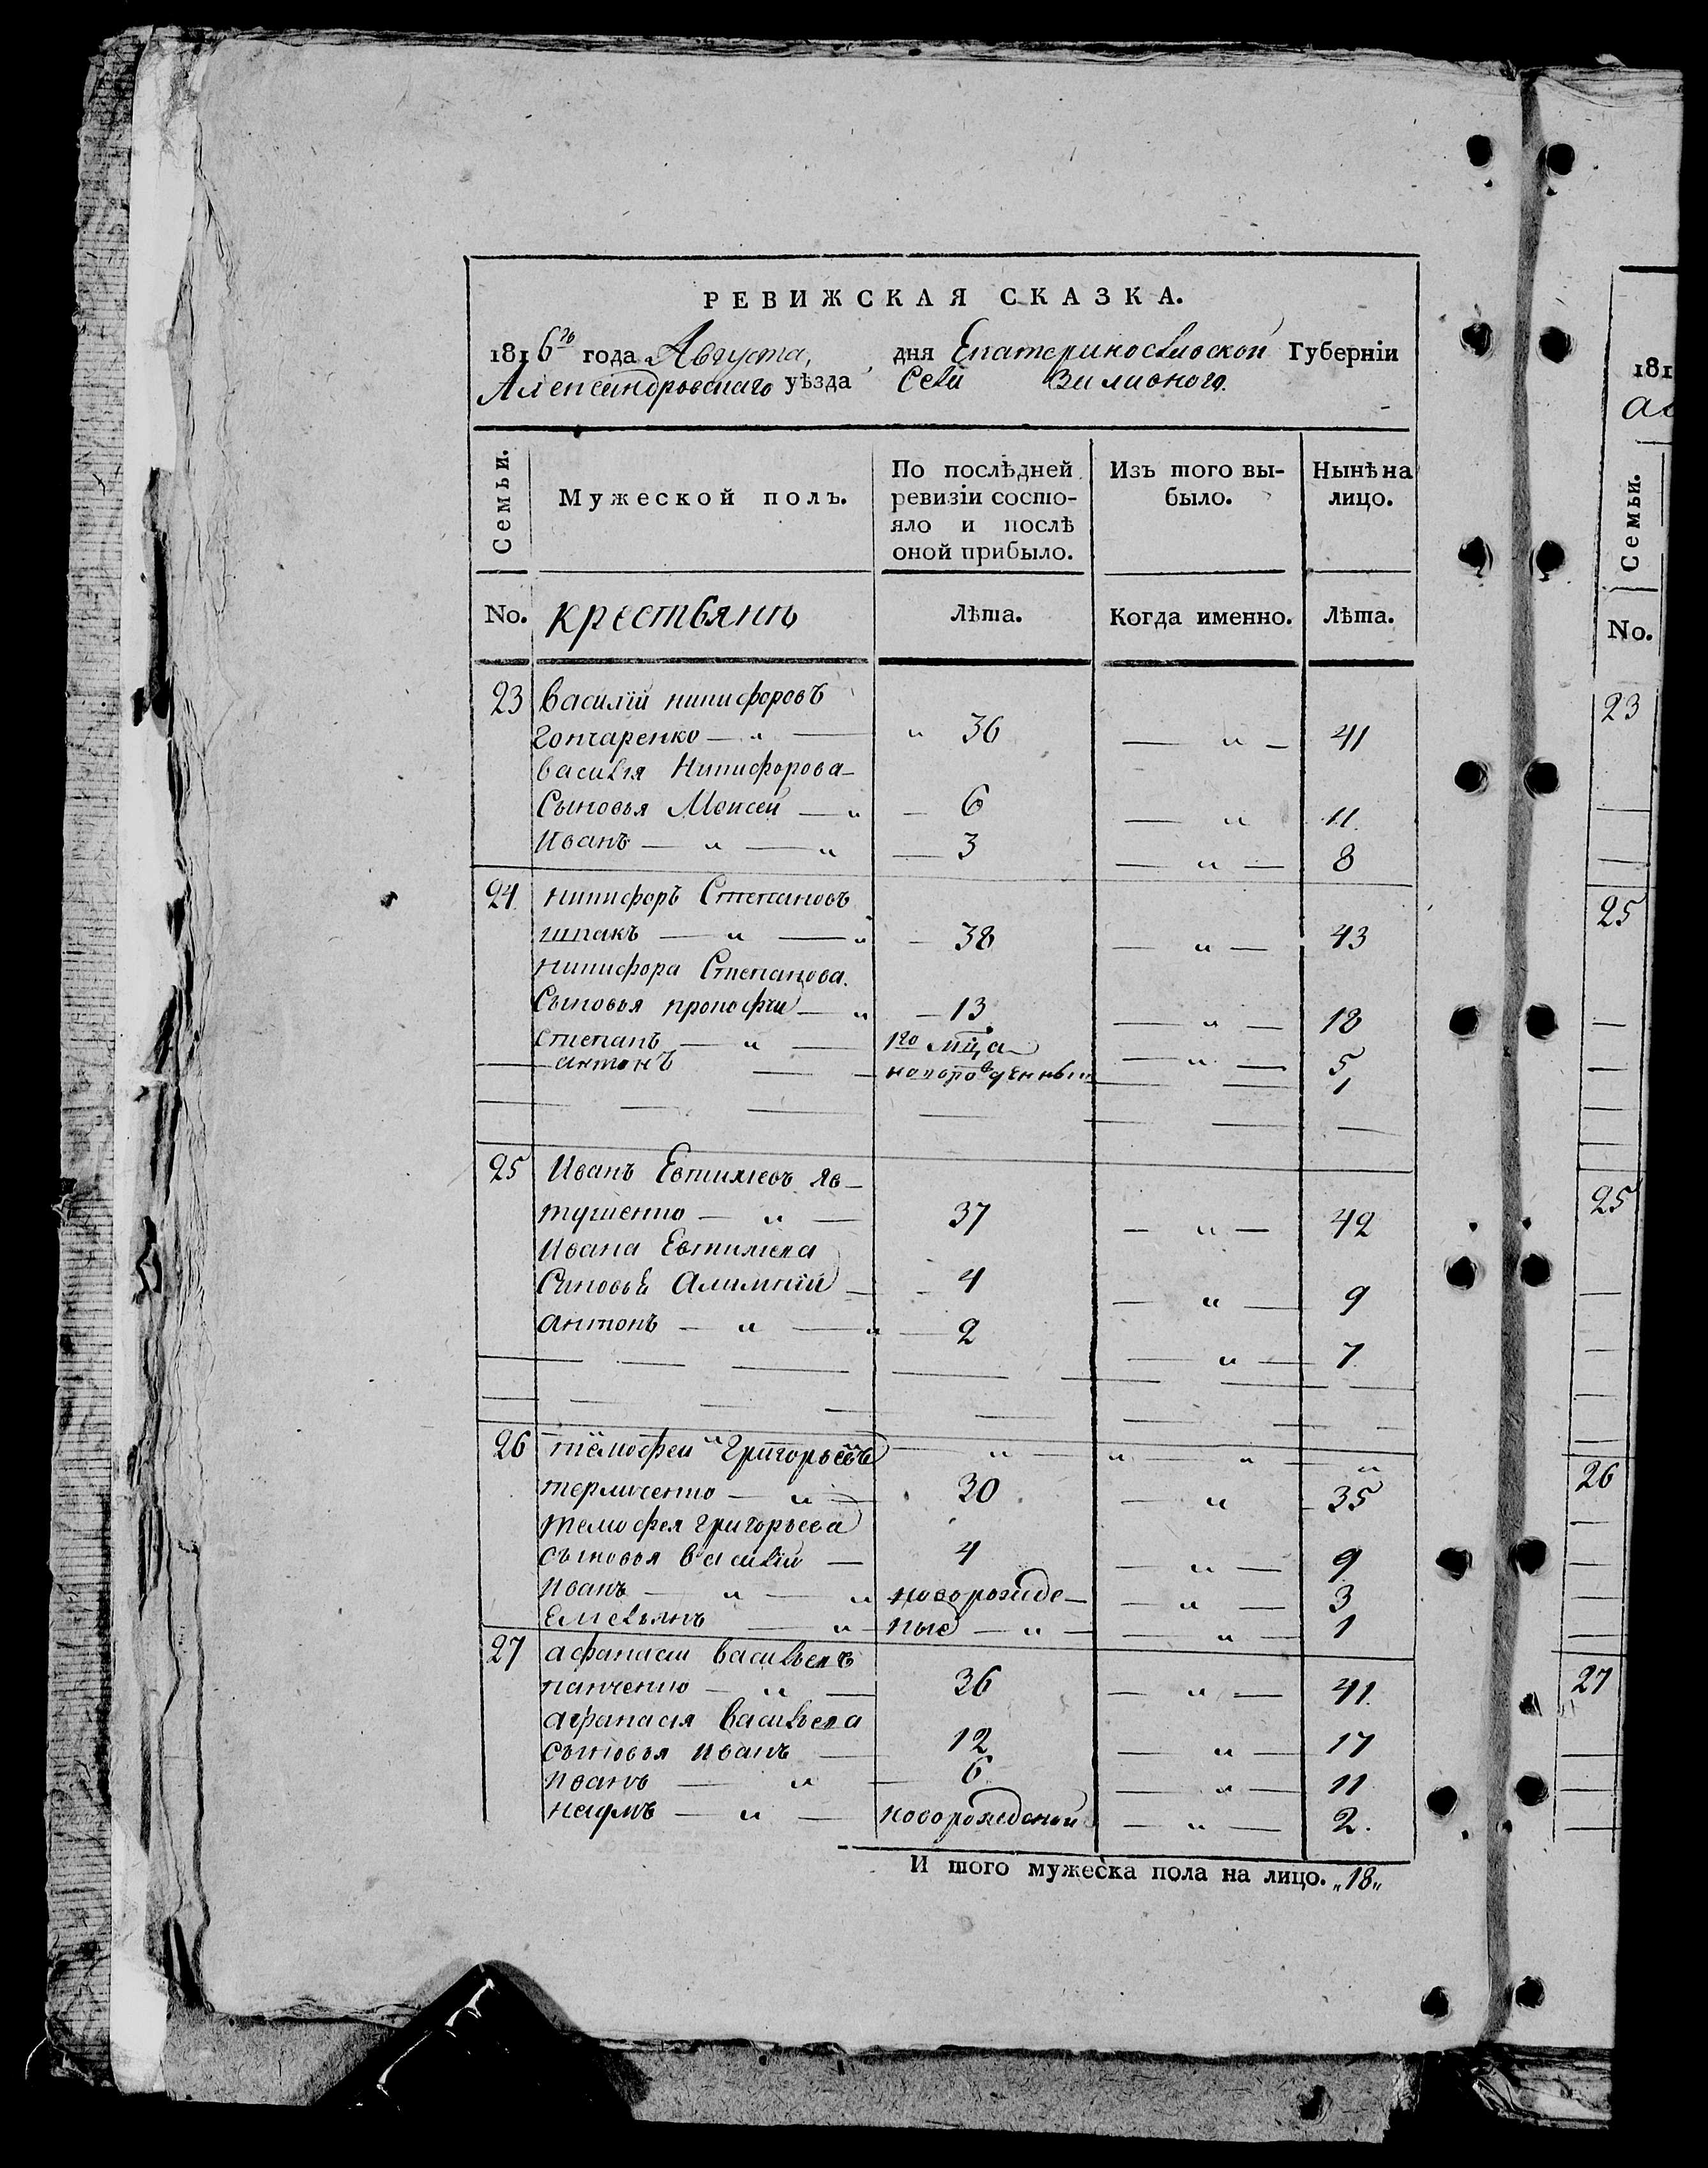 РЕВИЖСКАЯ СКАЗКА.
1816го года Августа, дня Екатеринославской Губерніи
Александровскаго уѣзда Села
Семьи.
Мужеской полъ.
По послѣдней ревизіи состо-
яло и послѣ
оной прибыло.
Изъ того вы-
было.
Нынѣ на
лицо.
No. крестьянъ Лѣта. Когда именно. Лѣта.
23 василій никифоровъ
гончаренко — „ — „ 36 — „ — 41
василія Никифорова
Сыновья Моисей — „ — 6 — „ 11.
Иванъ — „ — „ — 3 — „ — 8
24. никифоръ Степановъ
шпакъ — „ — „ — 38 — „ — 43
никифора Степанова.
Сыновья прокофчи — „ — 13 — „ — 18
степанъ — „ — 1го мца — „ — 5
антонъ — новорожденный — 1
25 Иванъ Евтихіевъ яв-
тушенко — „ — 37 — „ — 42
Ивана Евтихіева
Синовьѣ — 4 — „ — 9
антонъ — „ — „ — 2 — „ — 7
26 тимофеи Григорьевъ
— „ — 30 — „ — 35
тимофея григорьева
сыновья василій — 4 — „ — 9
иванъ — „ — „ новорожде- — „ — 3
Емельянъ — „ ные — „ — „ — 1
27 афанасіи васильевъ
панченко — „ — 36 — „ — 41.
афанасія васильева
сыновья иванъ — 12 — „ — 17
иванъ — „ — 6 — „ — 11
наумъ — „ — новорожденой — „ — 2.
И того мужеска пола на лицо. „18„
181
Семьи.
No.
23
25
25
26
27